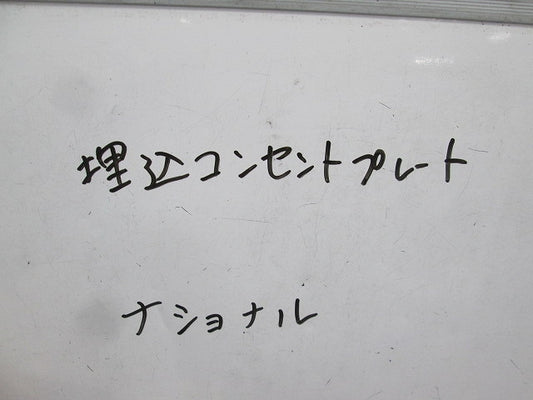 埋込コンセントプレート
ナショナル